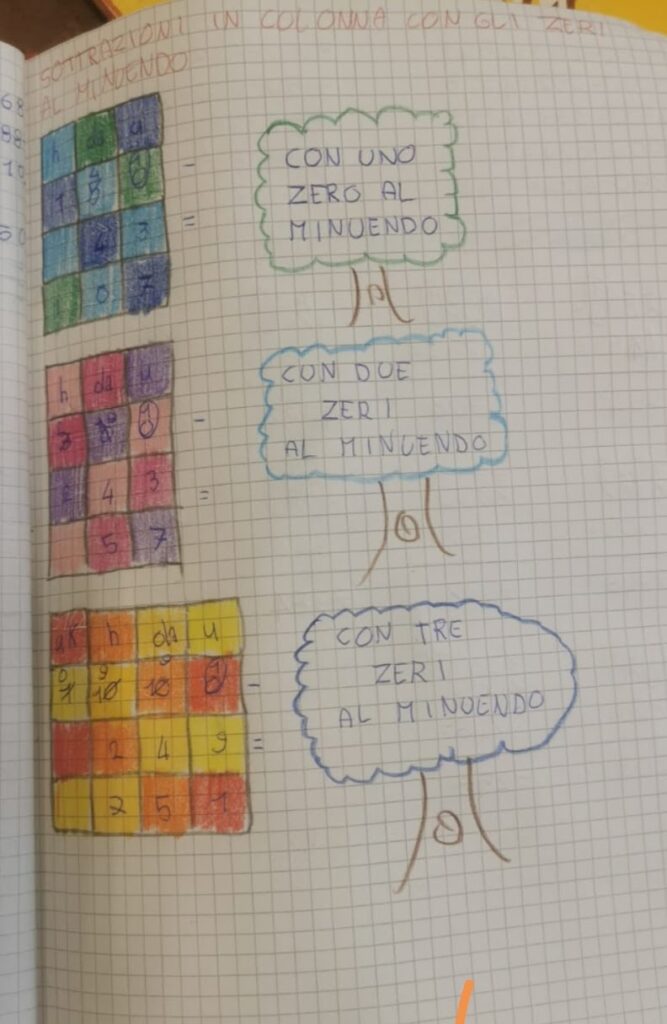 SOTTRAZIONI IN COLONNA CON GLI ZERI
AL MINUENDO
h da u
4
1 5 0 -
4 3 =
1 0 7
CON UNO
ZERO AL
MINUENDO
h da u
3 -
2 4 3 =
5 7
CON DUE
ZERI
AL MINUENDO
uk h da u
0 9 9
1 10 10 0 -
2 4 9 =
2 5 1
CON TRE
ZERI
AL MINUENDO